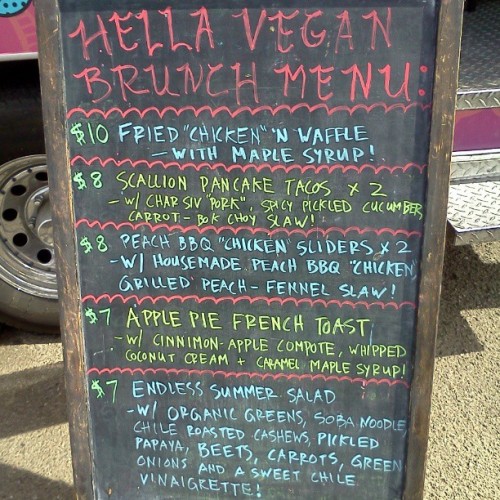 HELLA VEGAN
BRUNCH MENU:
$10 FRIED "CHICKEN" 'N WAFFLE
- WITH MAPLE SYRUP!
$8 SCALLION PANCAKE TACOS x 2
- W/ CHAR SIV "PORK", SPICY PICKLED CUCUMBER,
CARROT - BOK CHOY SLAW!
$8 PEACH BBQ "CHICKEN" SLIDERS x 2
- W/ HOUSEMADE PEACH BBQ "CHICKEN"
GRILLED PEACH - FENNEL SLAW!
$7 APPLE PIE FRENCH TOAST
- W/ CINNIMON-APPLE COMPOTE, WHIPPED
COCONUT CREAM + CARAMEL MAPLE SYRUP!
$7 ENDLESS SUMMER SALAD
- W/ ORGANIC GREENS, SOBA NOODLE,
CHILE ROASTED CASHEWS, PICKLED
PAPAYA, BEETS, CARROTS, GREEN
ONIONS AND A SWEET CHILE
VINAIGRETTE!